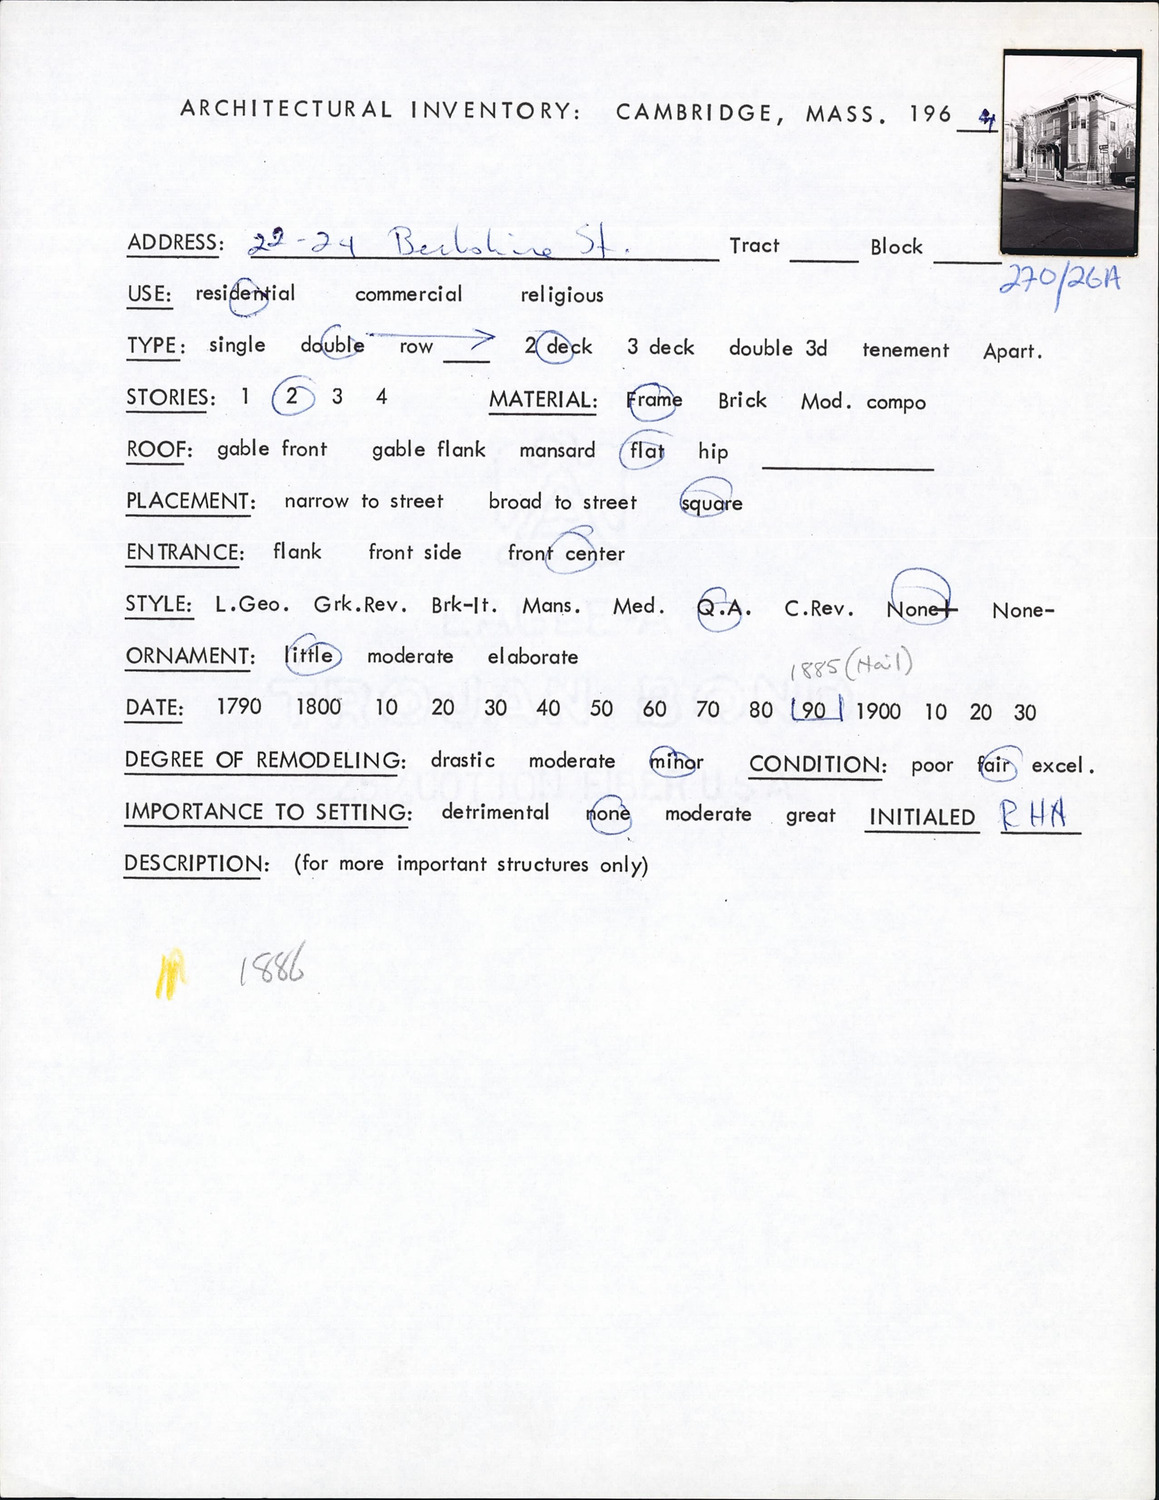 ARCHITECTURAL INVENTORY: CAMBRIDGE, MASS. 196 4
ADDRESS: 22-24 Berkshire St. Tract Block
270/26A
USE: residential commercial religious
TYPE: single double row 2 deck 3 deck double 3d tenement Apart.
STORIES: 1 2 3 4 MATERIAL: Frame Brick Mod. compo
ROOF: gable front gable flank mansard flat hip
PLACEMENT: narrow to street broad to street square
ENTRANCE: flank front side front center
STYLE: L.Geo. Grk.Rev. Brk-It. Mans. Med. Q.A. C.Rev. None+ None-
ORNAMENT: little moderate elaborate
1885 (Hail)
DATE: 1790 1800 10 20 30 40 50 60 70 80 90 1900 10 20 30
DEGREE OF REMODELING: drastic moderate minor CONDITION: poor fair excel.
IMPORTANCE TO SETTING: detrimental none moderate great INITIALED RHA
DESCRIPTION: (for more important structures only)
1886